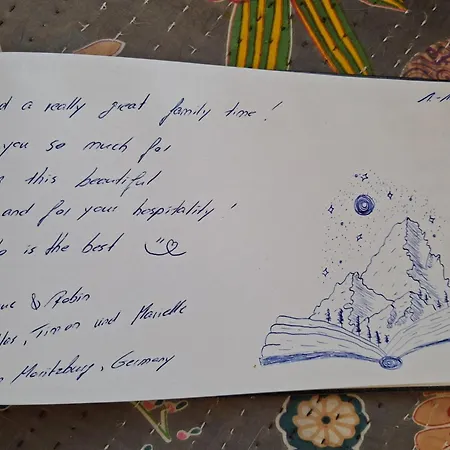 a really great family time!
you so much for
this beautiful
and for your hospitality!
is the best
& Robin
, Timon und Mariette
Moritzburg, Germany